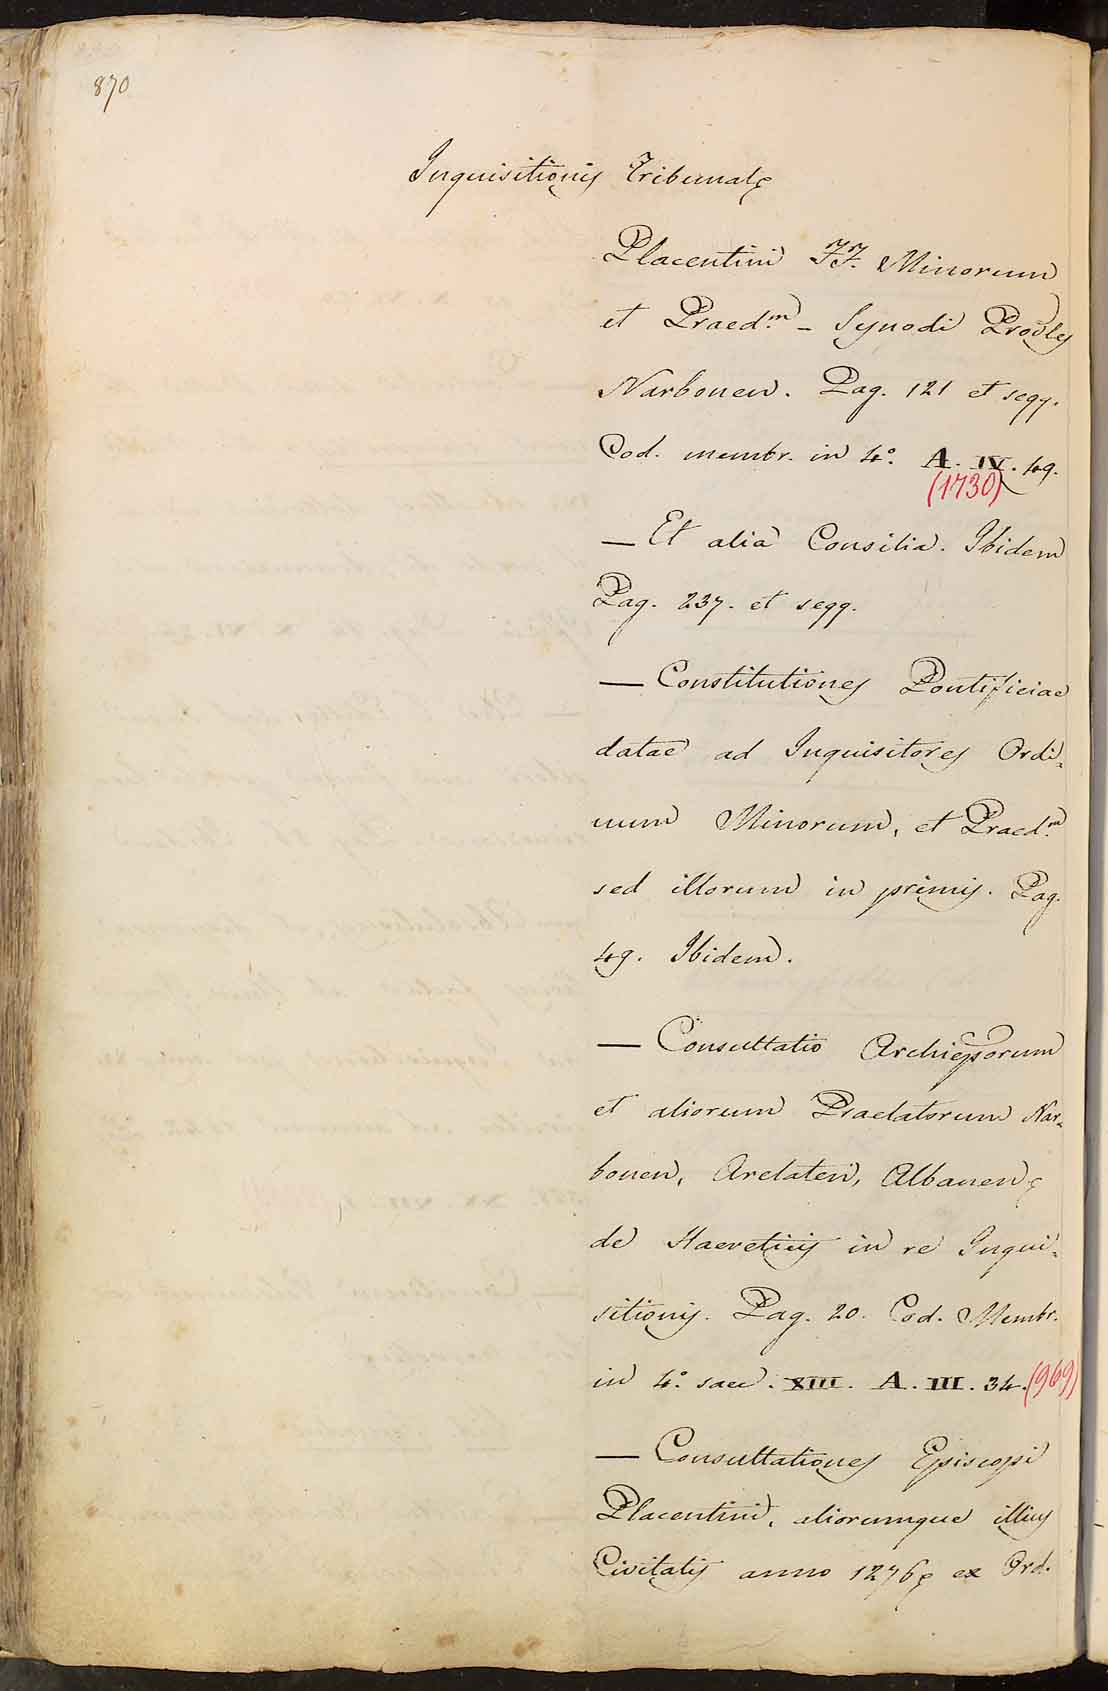 870
Inquisitionis Tribunal
Placentini FF. Minorum
et Praed.m - Synodi Provlis
Narbonen. Pag. 121 et seqq.
Cod. membr. in 4.º A. IV. 49.
(1730)
— Et alia Consilia. Ibidem
Pag. 237. et seqq.
— Constitutiones Pontificiae
datae ad Inquisitores Ordi=
num Minorum, et Praed.m
sed illorum in primis. Pag.
49. Ibidem.
— Consultatio Archieporum
et aliorum Praelatorum Nar=
bonen, Arelaten, Albanen
de Haereticis in re Inqui=
sitionis. Pag. 20. Cod. Membr.
in 4.º saec. XIII. A. III. 34. (969)
— Consultationes Episcopi
Placentini, aliorumque illius
Civitatis anno 1276 ex Ord.